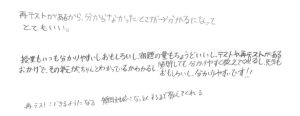 再テストがあるから、分からなかったところが分かるようになって
とてもいい。
授業もいつも分かりやすいしおもしろいし、宿題の量もちょうどいいし、テストや再テストがある
おかげで、その単元がちゃんとわかっているかわかるし、質問しても分かりやすく教えてくれるし、先生も
おもしろいし、分かりやすいです!!
再テスト できるようになる 質問 になっとくするまで教えてくれる